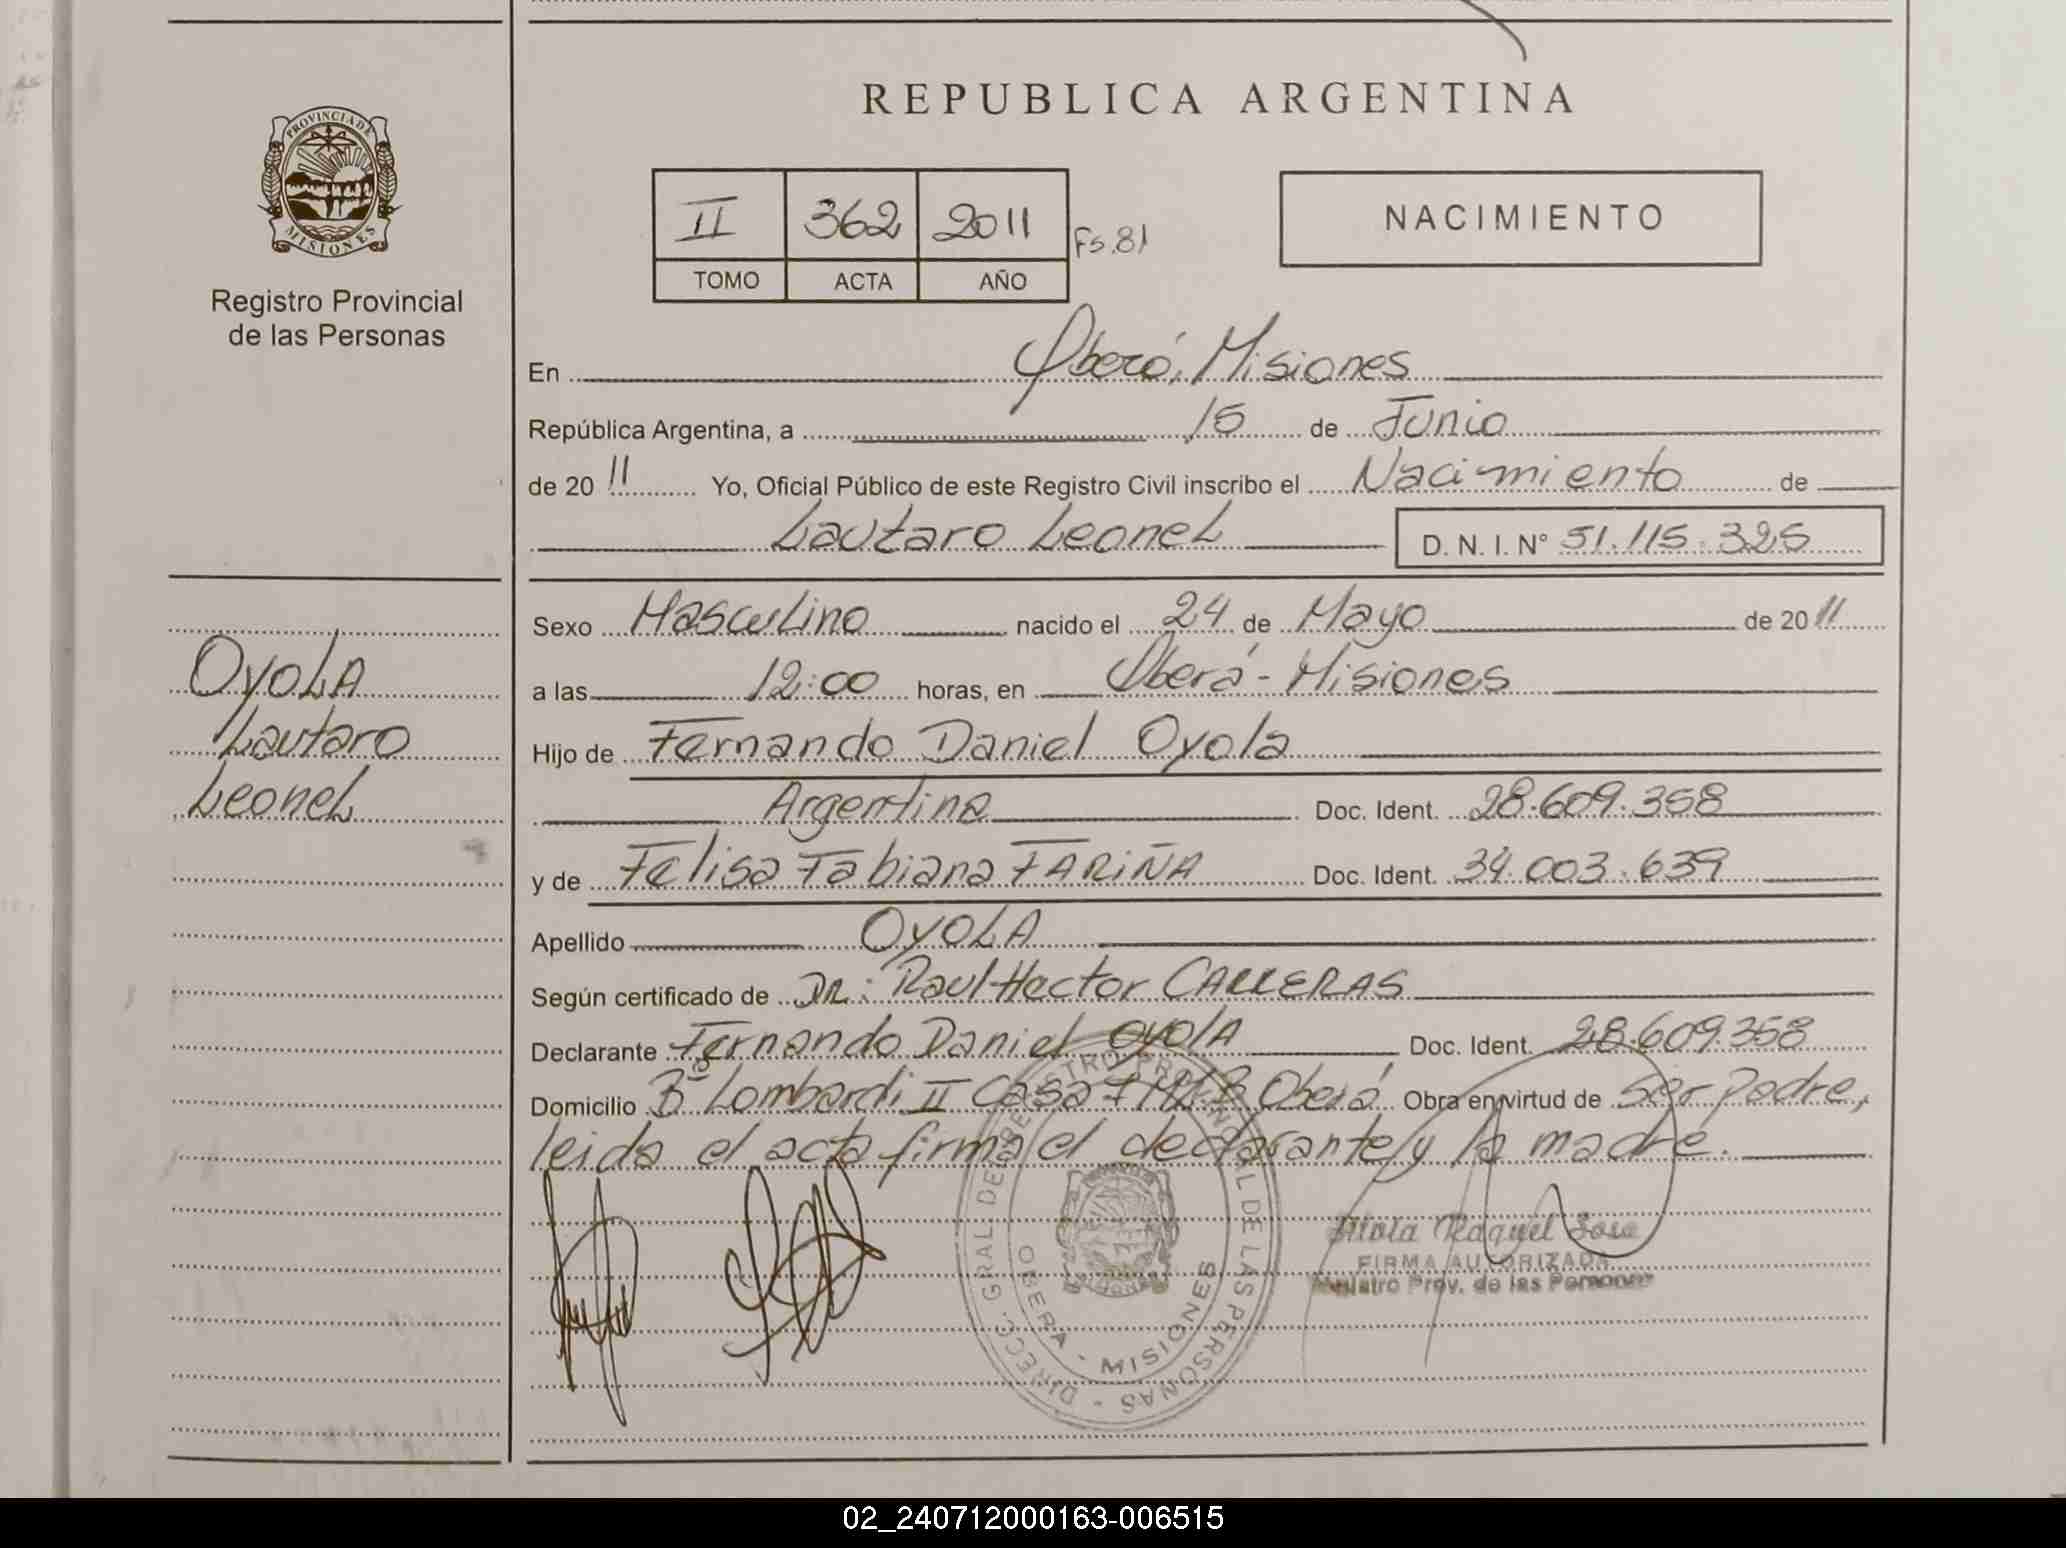 REPUBLICA ARGENTINA
PROVINCIA DE
MISIONES
Registro Provincial
de las Personas
II 362 2011 Fs.81
TOMO ACTA AÑO
NACIMIENTO
En Oberá, Misiones
República Argentina, a 15 de Junio
de 2011 Yo, Oficial Público de este Registro Civil inscribo el Nacimiento de
Lautaro Leonel D. N. I. N° 51.115.325
Sexo Masculino nacido el 24 de Mayo de 2011
a las 12:00 horas, en Oberá - Misiones
Hijo de Fernando Daniel Oyola
Argentina Doc. Ident. 28.609.358
y de Felisa Fabiana FARIÑA Doc. Ident. 34.003.639
Apellido OYOLA
Según certificado de Dr: Raul Hector CARRERAS
Declarante Fernando Daniel OYOLA Doc. Ident. 28.609.358
Domicilio B° Lombardi II Casa 7 Oberá Obra en virtud de ser padre,
leida el acta firma el declarante y la madre.
OYOLA
Lautaro
Leonel
DIRECC. GRAL DEL REGISTRO PROVINCIAL DE LAS PERSONAS -
OBERA - MISIONES
Raquel Sosa
FIRMA AUTORIZADA
Registro Prov. de las Personas
02_240712000163-006515